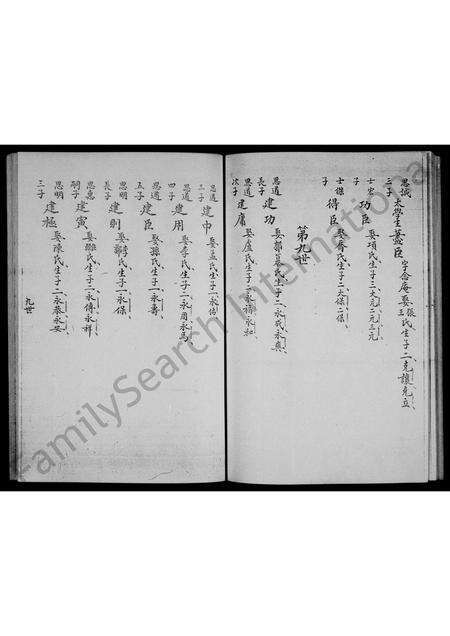 思誠
三子
太學生藎臣
字念庵娶張王氏生子二克讓克立
士宏
子
功臣
娶項氏生子三大元二元三元
士傑
子
得臣
娶喬氏生子二大保二保
第九世
思通
長子
建功
娶郭氏生子二永成永興
思通
次子
建庸
娶盧氏生子二永禎永和
思通
三子
建中
娶孟氏生子一永治
思通
四子
建用
娶李氏生子二永
思通
五子
建臣
娶孫氏生子一永壽
思明
長子
建則
氏生子一永保
思惠
嗣子
建寅
氏生子二永傳永祥
思明
三子
建極
娶陳氏生子二永泰永安
九世
FamilySearch International